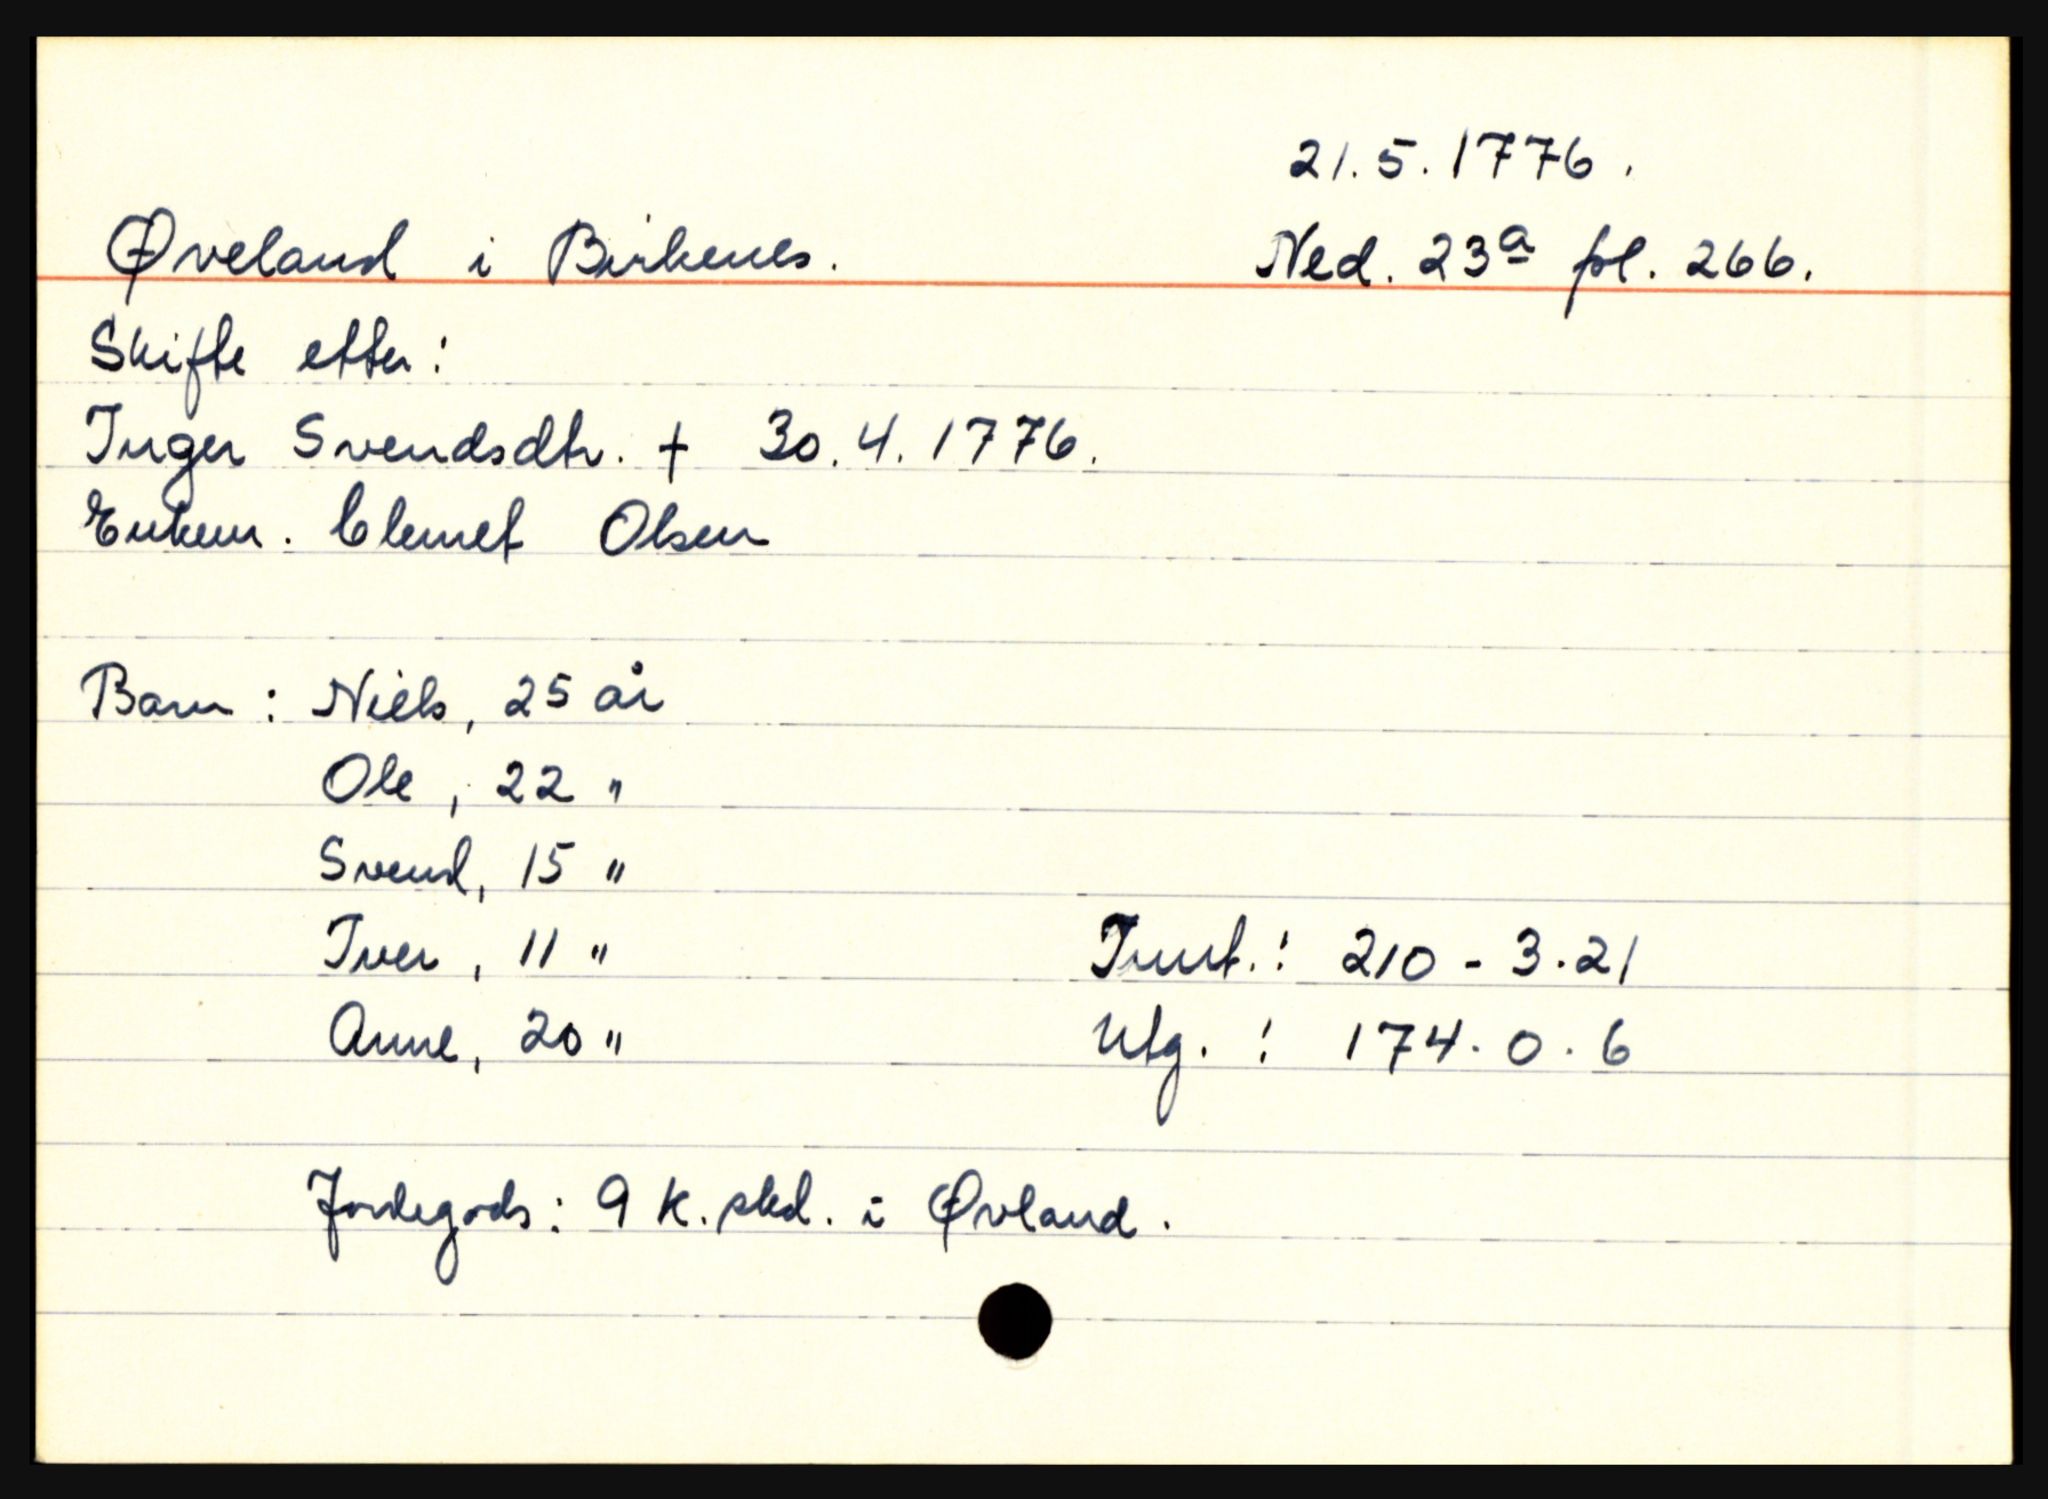 21.5.1776.
Øveland i Birkenes. Ned. 23a fol. 266.
Skifte etter:
Inger Svendsdtr. † 30.4.1776.
Enkem. Clemet Olsen
Barn: Niels, 25 år
Ole, 22 "
Svend, 15 "
Iver, 11 " Innt.: 210-3.21
Anne, 20 " Utg.: 174.0.6
Jordegods: 9 k. skd. i Øvland.